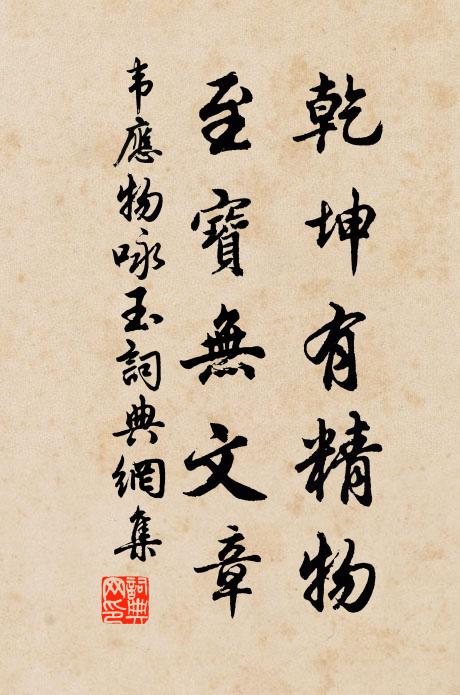 乾坤有精物
至寶無文章
韦應物咏玉詞典網集
詞典網印